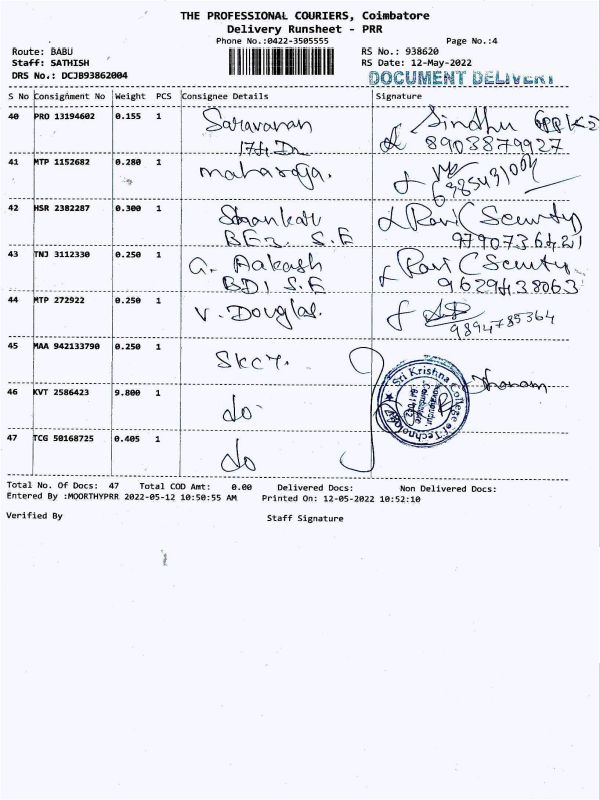 THE PROFESSIONAL COURIERS, Coimbatore
Delivery Runsheet - PRR
Phone No.:0422-3505555
Page No.:4
Route: BABU
RS No.: 938620
Staff: SATHISH
RS Date: 12-May-2022
DRS No.: DCJB93862004
DOCUMENT DELIVERY
S No Consignment No Weight PCS Consignee Details Signature
40 PRO 13194602 0.155 1 Saravanan Sindhu
8903879927
41 MTP 1152682 0.280 1
42 HSR 2382287 0.300 1 Shankar Ravi (Security
S.E 9790736421
43 TNJ 3112330 0.250 1 G. Aakash Ravi (Security
BD1 S.E 9629438063
44 MTP 272922 0.250 1 V. Douglas.
9894785364
45 MAA 942133790 0.250 1 SKCT.
Sri Krishna College of Technology
Coimbatore
46 KVT 2586423 9.800 1 do
47 TCG 50168725 0.405 1 do
Total No. Of Docs: 47 Total COD Amt: 0.00 Delivered Docs: Non Delivered Docs:
Entered By :MOORTHYPRR 2022-05-12 10:50:55 AM Printed On: 12-05-2022 10:52:10
Verified By Staff Signature